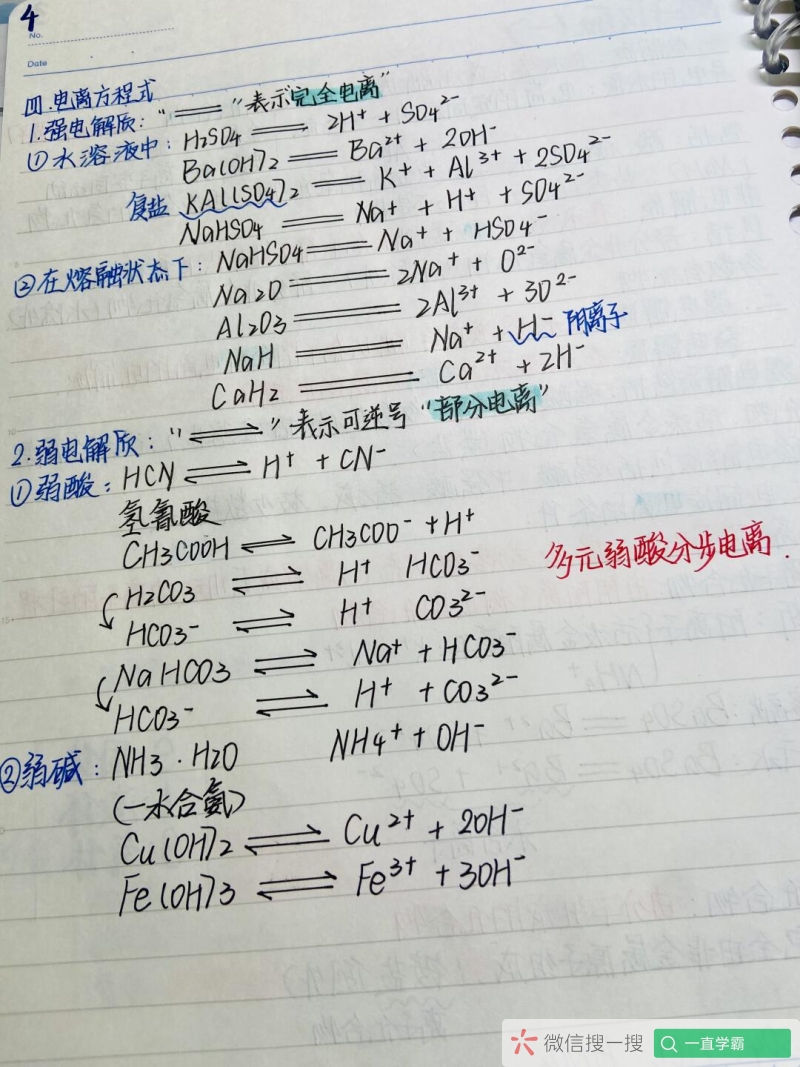 4
No.
Date
四.电离方程式
1.强电解质: "══" 表示"完全电离"
①水溶液中: H2SO4 ══ 2H+ + SO4²⁻
Ba(OH)2 ══ Ba²⁺ + 2OH⁻
复盐 KAl(SO4)2 ══ K+ + Al³⁺ + 2SO4²⁻
NaHSO4 ══ Na+ + H+ + SO4²⁻
②在熔融状态下: NaHSO4 ══ Na+ + HSO4⁻
Na2O ══ 2Na+ + O²⁻
Al2O3 ══ 2Al³⁺ + 3O²⁻
NaH ══ Na+ + H⁻ 阴离子
CaH2 ══ Ca²⁺ + 2H⁻
2.弱电解质: "⇌" 表示可逆号 "部分电离"
①弱酸: HCN ⇌ H+ + CN⁻
氢氰酸
CH3COOH ⇌ CH3COO⁻ + H+
H2CO3 ⇌ H+ HCO3⁻ 多元弱酸分步电离.
HCO3⁻ ⇌ H+ CO3²⁻
NaHCO3 ⇌ Na+ + HCO3⁻
HCO3⁻ ⇌ H+ + CO3²⁻
②弱碱: NH3·H2O NH4+ + OH⁻
(一水合氨)
Cu(OH)2 ⇌ Cu²⁺ + 2OH⁻
Fe(OH)3 ⇌ Fe³⁺ + 3OH⁻
微信搜一搜 一直学霸